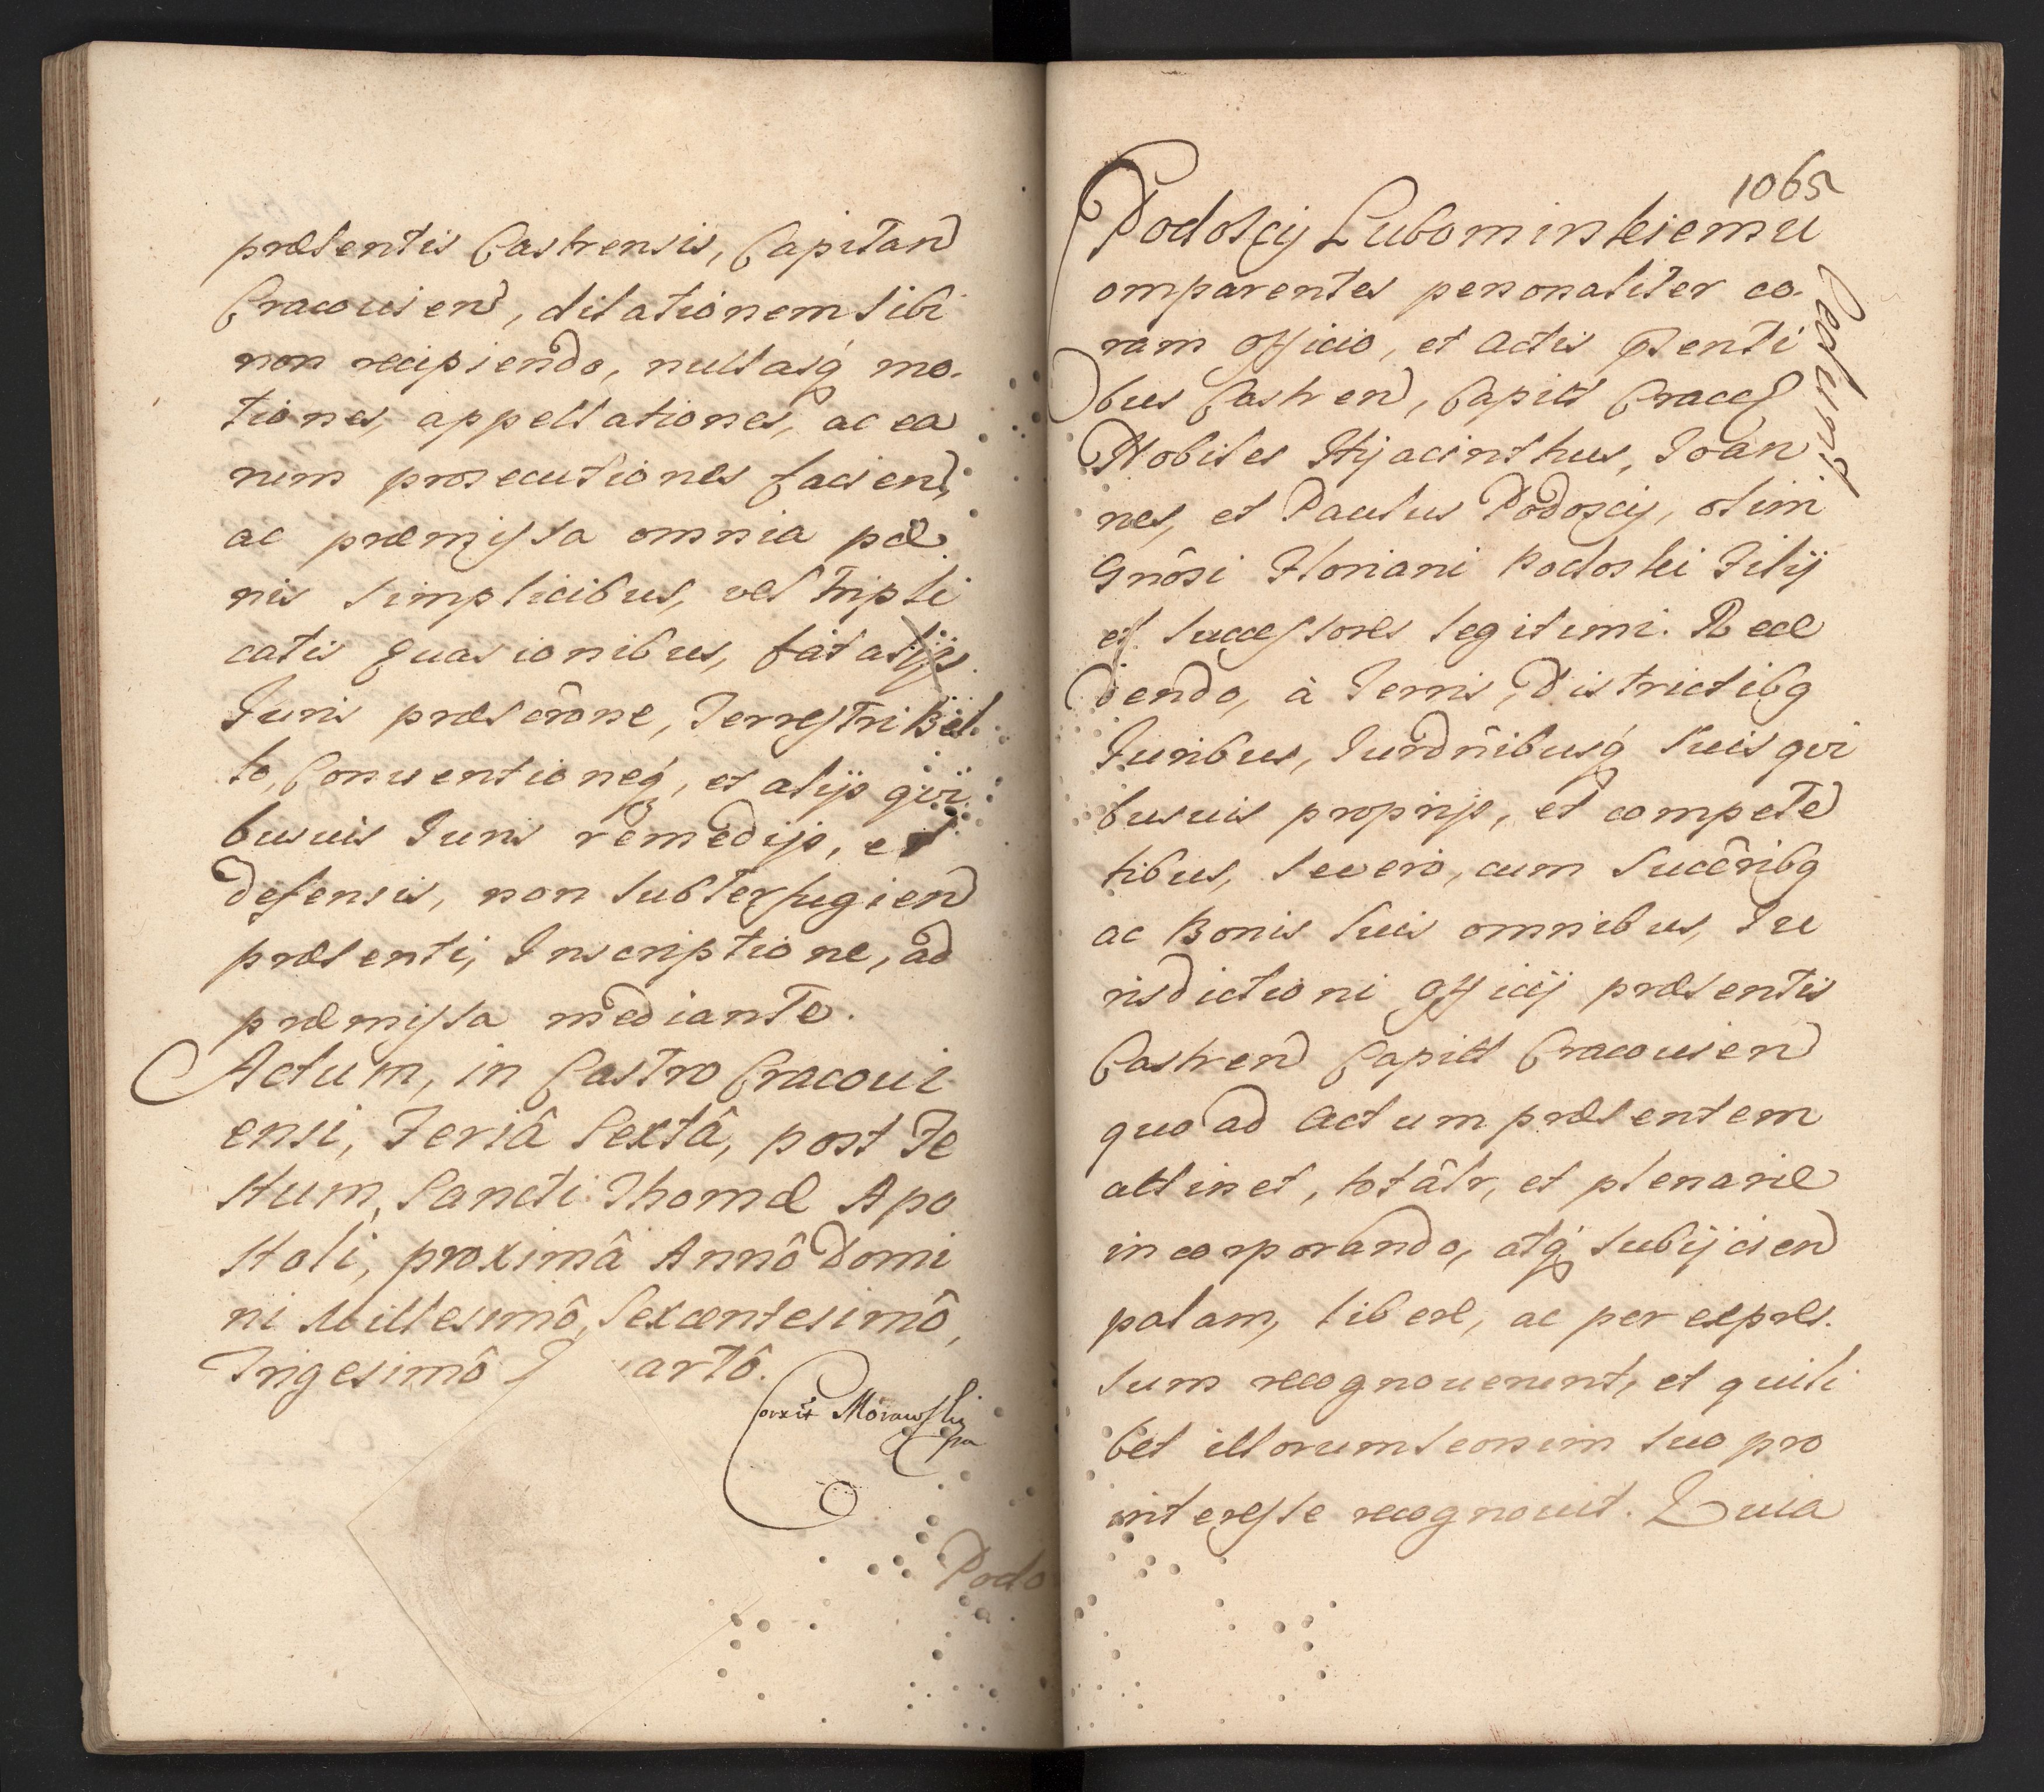 præsentis Castrensis, Capitan
Cracouien, dilationem sibi
non recipiendo, nullasq́ mo-
tiones, appellationes, ac ea
rum prosecutiones facien,
ac præmissa omnia pæ
nis simplicibus, vel tripli
catis euasionibus, fatalijs
Juris præscrône, Terrestri Bel-
lo, Conuentioneq́, et alijs qui
busuis Juris remedijs, et
defensis, non subterfugien
præsenti, Inscriptione, ad
præmissa mediante.
Actum, in Castro Cracoui
ensi, Feriâ Sextâ, post Fe
stum, Sancti Thomæ Apo
stoli, proximâ Annô Domi
ni Millesimô, Sexcentesimô,
Trigesimô artô.
Corexit Morawsky
Podo
1065
Podoscij Lubominskiemu
Cediunt
omparentes personaliter co-
ram officio, et Actis pñsenti
bus Castren, Capitt Cracc
Nobiles Hijacinthus, Joan
nes, et Paulus Podoscij, olim
Gnôsi Floriani Podoski Filij
et Successores legitimi. Rece
dendo, à Terris, Districtibq
Juribus, Jurdñibusq́ suis qui
busuis proprijs, et compete
tibus, seuero, cum Succêribq
ac Bonis suis omnibus, Ju
risdictioni officij præsentis
Castren Capitt Cracouien
quo ad Actum præsentem
attinet, totâlr, et plenarie
incorporando, atq́ subijcien
palam, libere, ac per expres-
sum recognouerunt, et quili
bet illorum seorsim suo pro
interesse recognouit. Quia